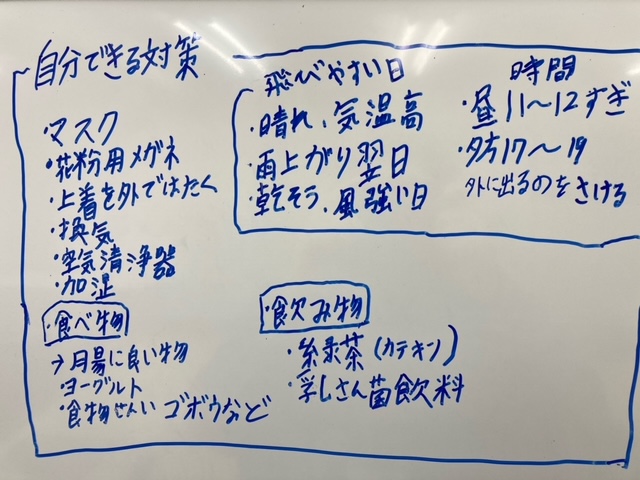 自分できる対策
・マスク
・花粉用メガネ
・上着を外ではたく
・換気
・空気清浄器
・加湿
・食べ物
→腸に良い物
・ヨーグルト
・食物せんい ゴボウなど
飛びやすい日
・晴れ、気温高
・雨上がり翌日
・乾そう、風強い日
時間
・昼11〜12すぎ
・夕方17〜19
外に出るのをさける
・飲み物
・緑茶(カテキン)
・乳さん菌飲料